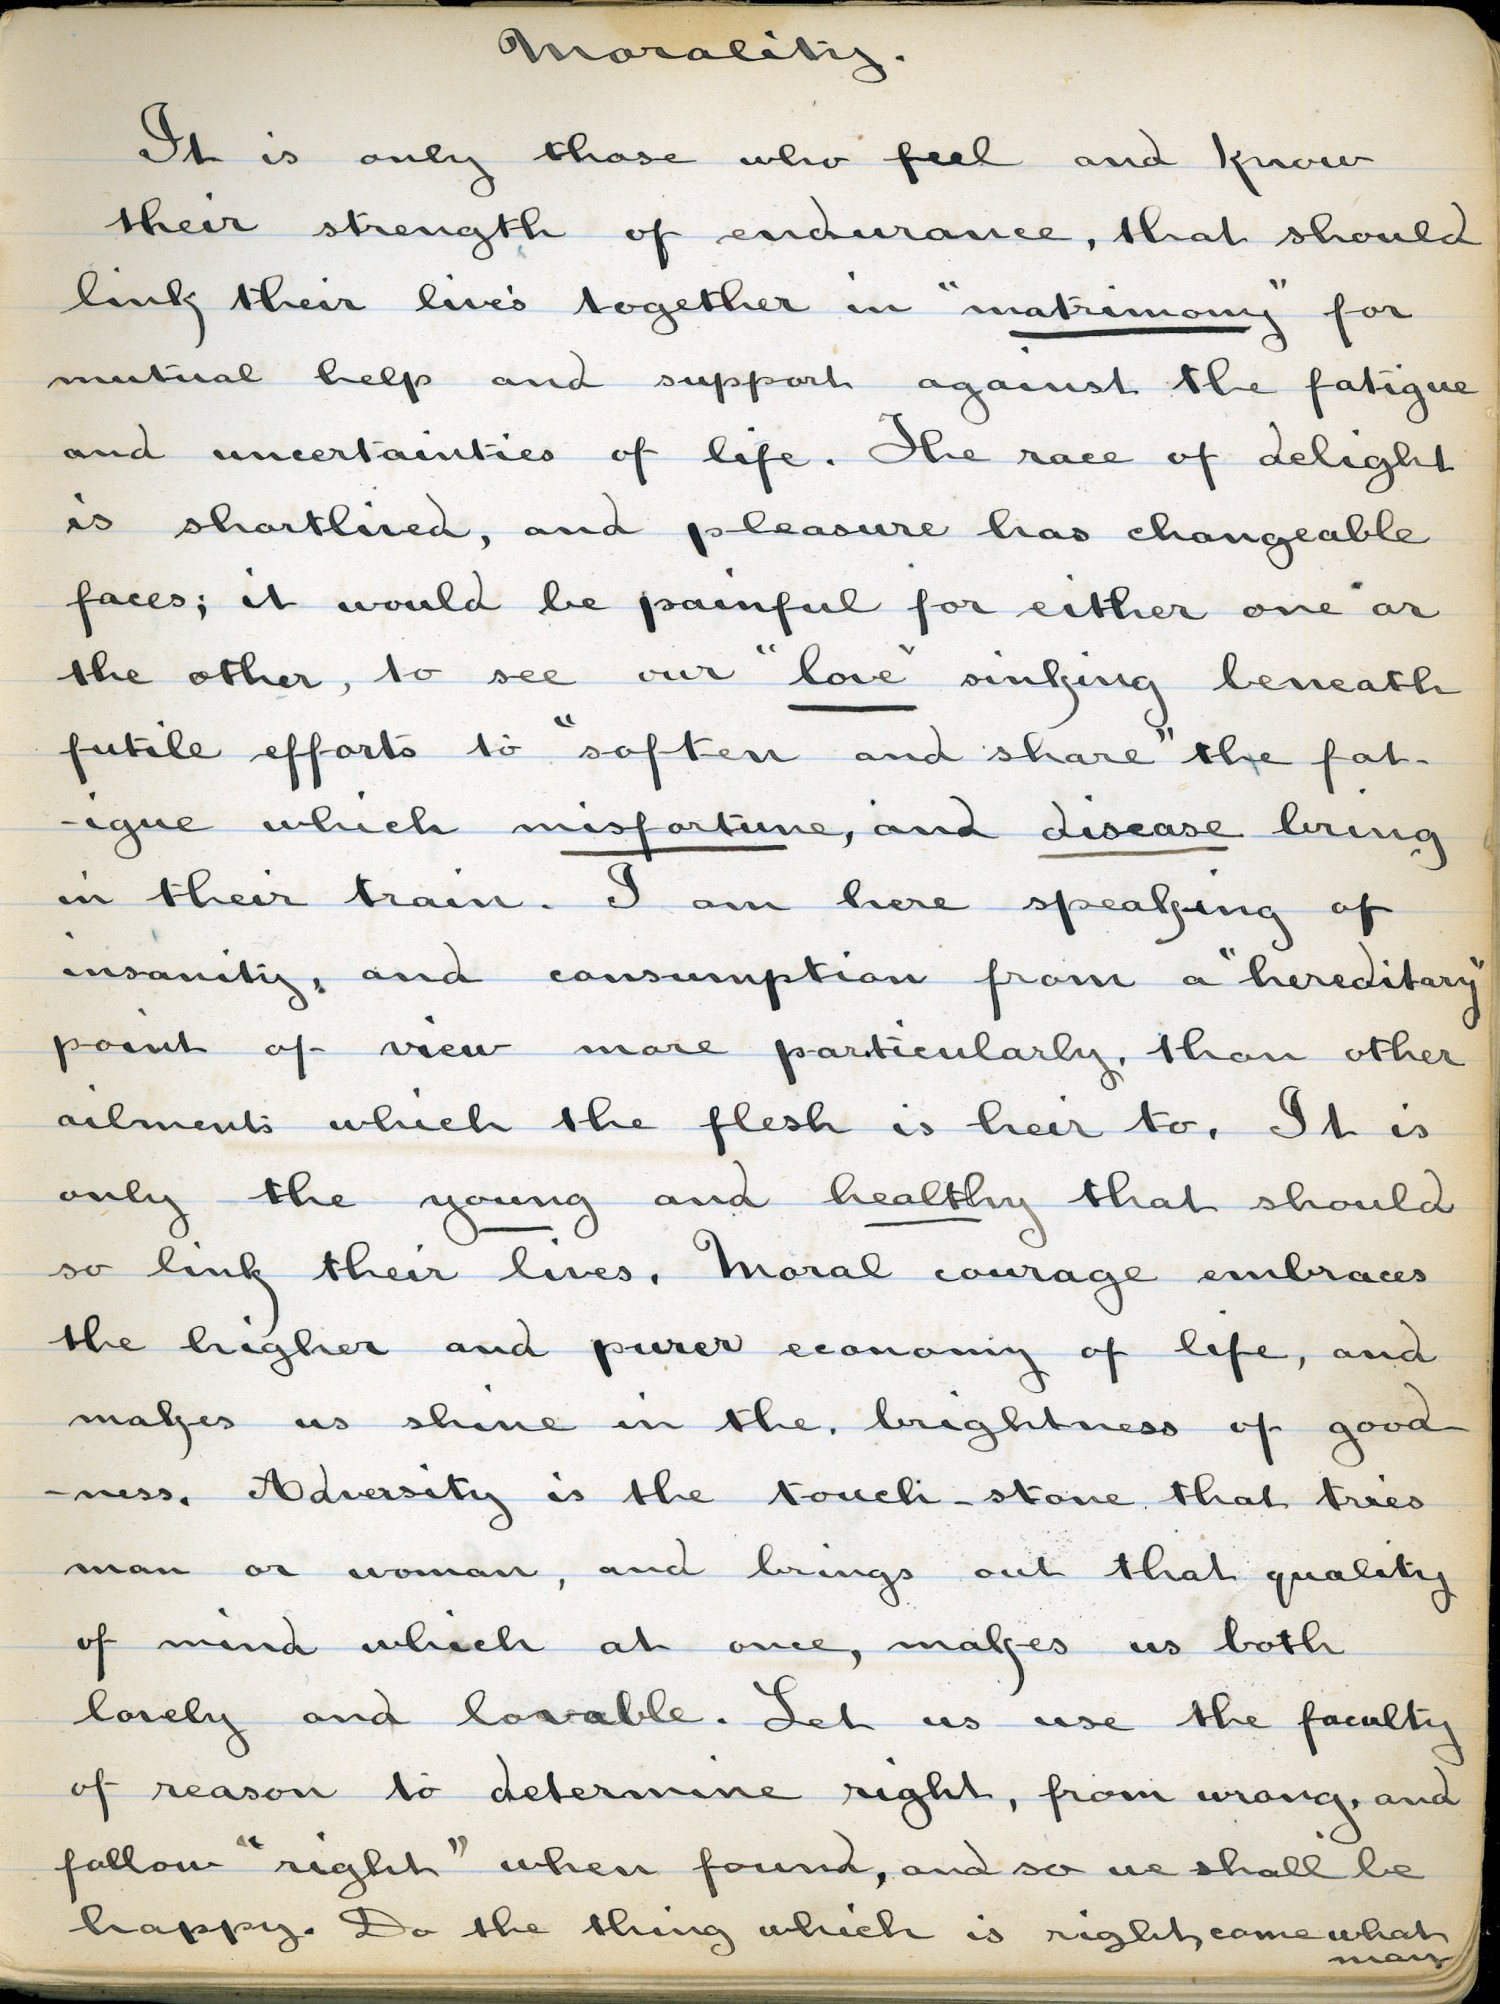 Morality.
It is only those who feel and know
their strength of endurance, that should
link their lives together in "matrimony" for
mutual help and support against the fatigue
and uncertainties of life. The race of delight
is shortlived, and pleasure has changeable
faces; it would be painful for either one or
the other, to see our "love" sinking beneath
futile efforts to "soften and share" the fat-
-igue which misfortune, and disease bring
in their train. I am here speaking of
insanity, and consumption from a "hereditary"
point of view more particularly, than other
ailments which the flesh is heir to. It is
only the young and healthy that should
so link their lives. Moral courage embraces
the higher and purer economy of life, and
makes us shine in the. brightness of good
-ness. Adversity is the touch-stone that tries
man or woman, and brings out that quality
of mind which at once, makes us both
lovely and lovable. Let us use the faculty
of reason to determine right, from wrong, and
follow "right" when found, and so we shall be
happy. Do the thing which is right, come what
may